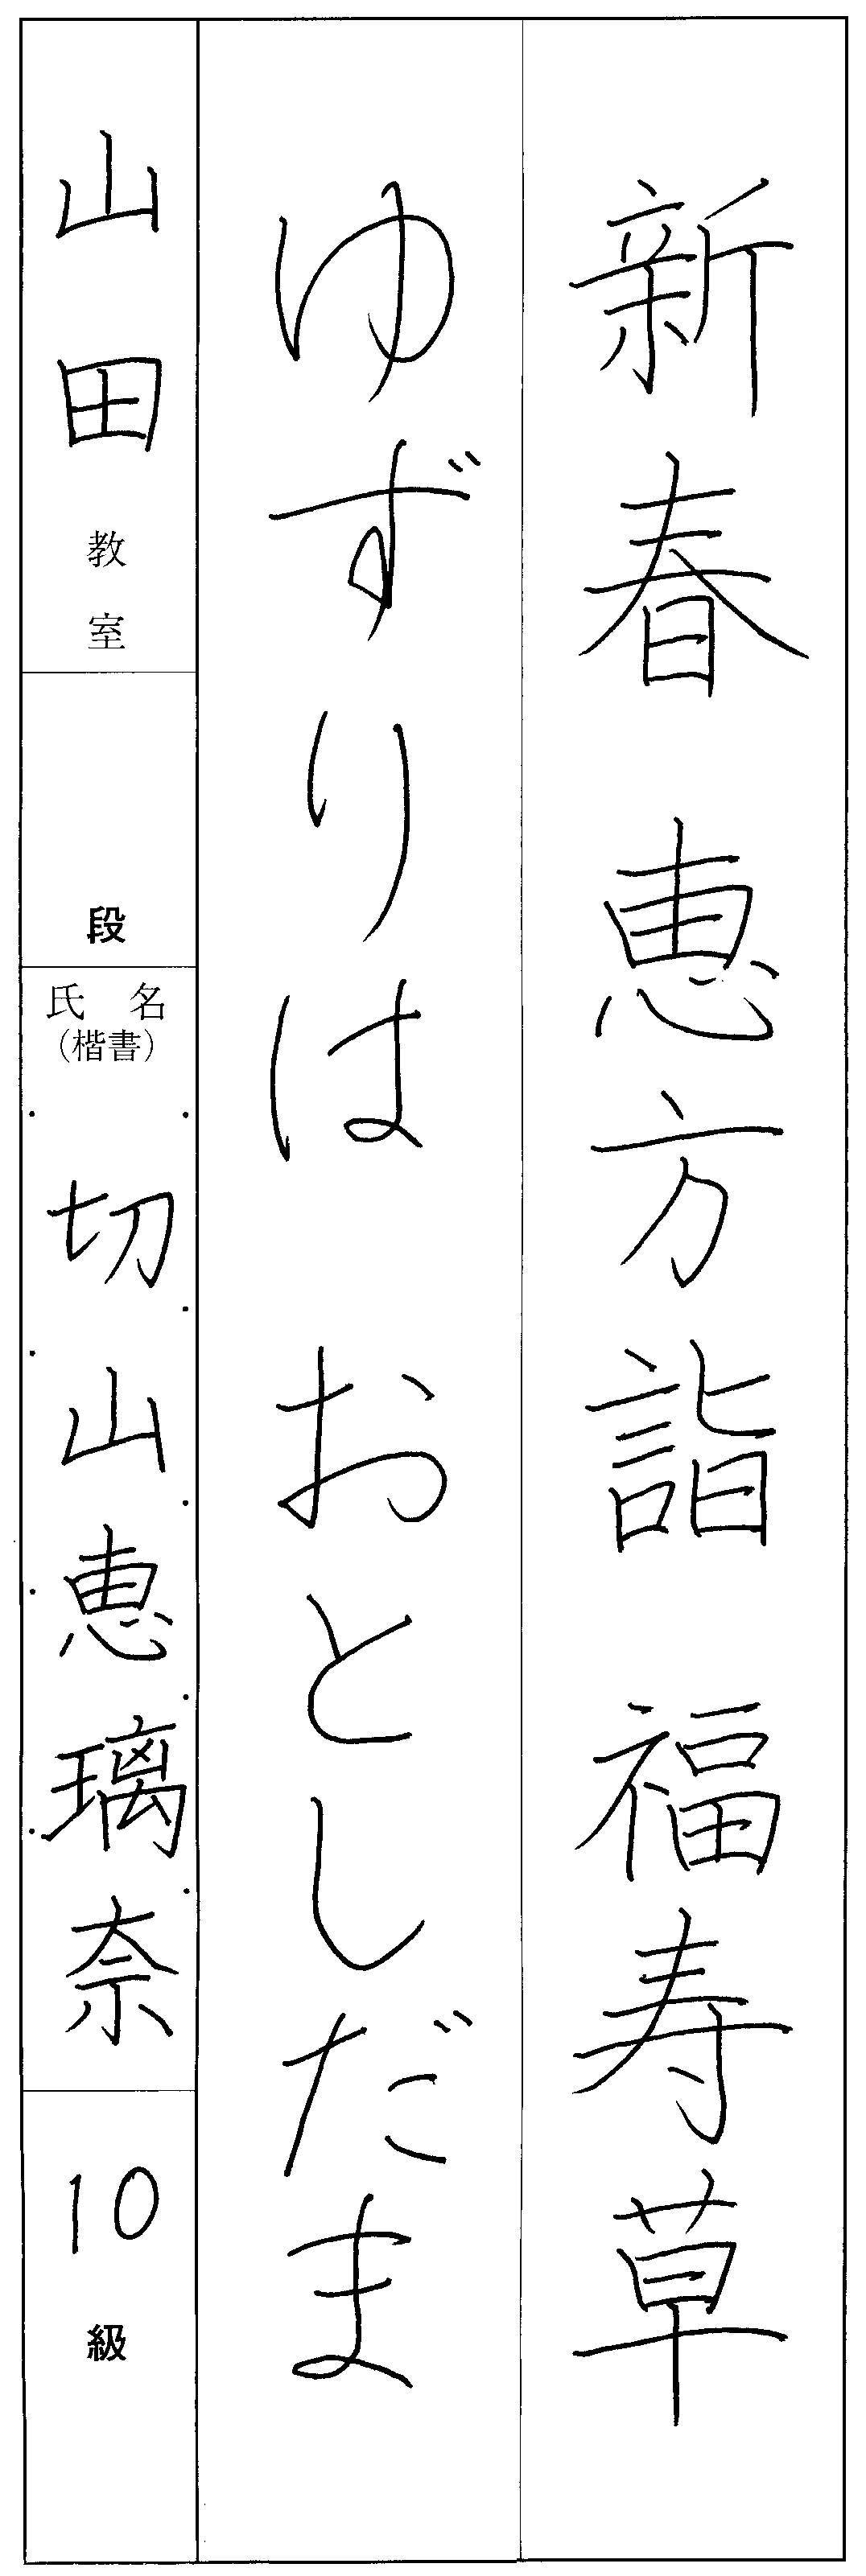 新春 恵方詣 福寿草
ゆずりは おとしだま
山田教室
段
氏名
(楷書)
切山恵璃奈
10級